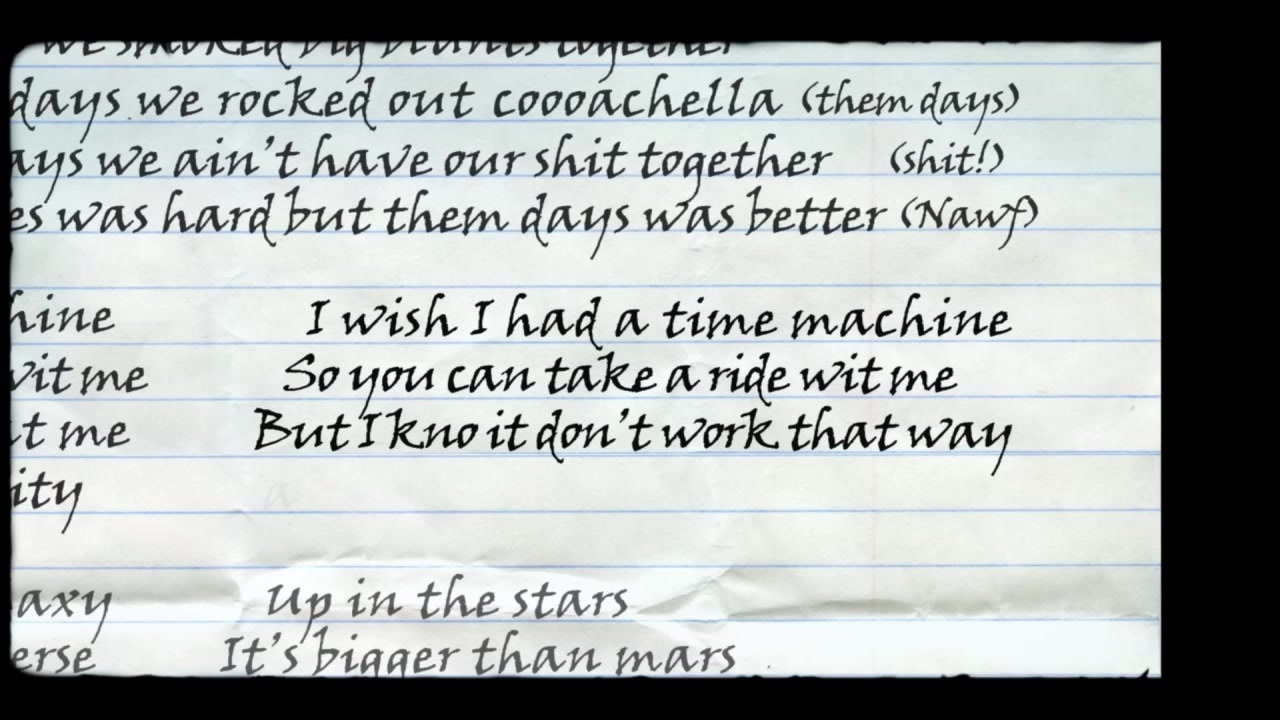 we smoked big blunts together
days we rocked out coooachella (them days)
ays we ain't have our shit together (shit!)
es was hard but them days was better (Nawf)
hine I wish I had a time machine
wit me So you can take a ride wit me
it me But I kno it don't work that way
ity
axy Up in the stars
erse It's bigger than mars